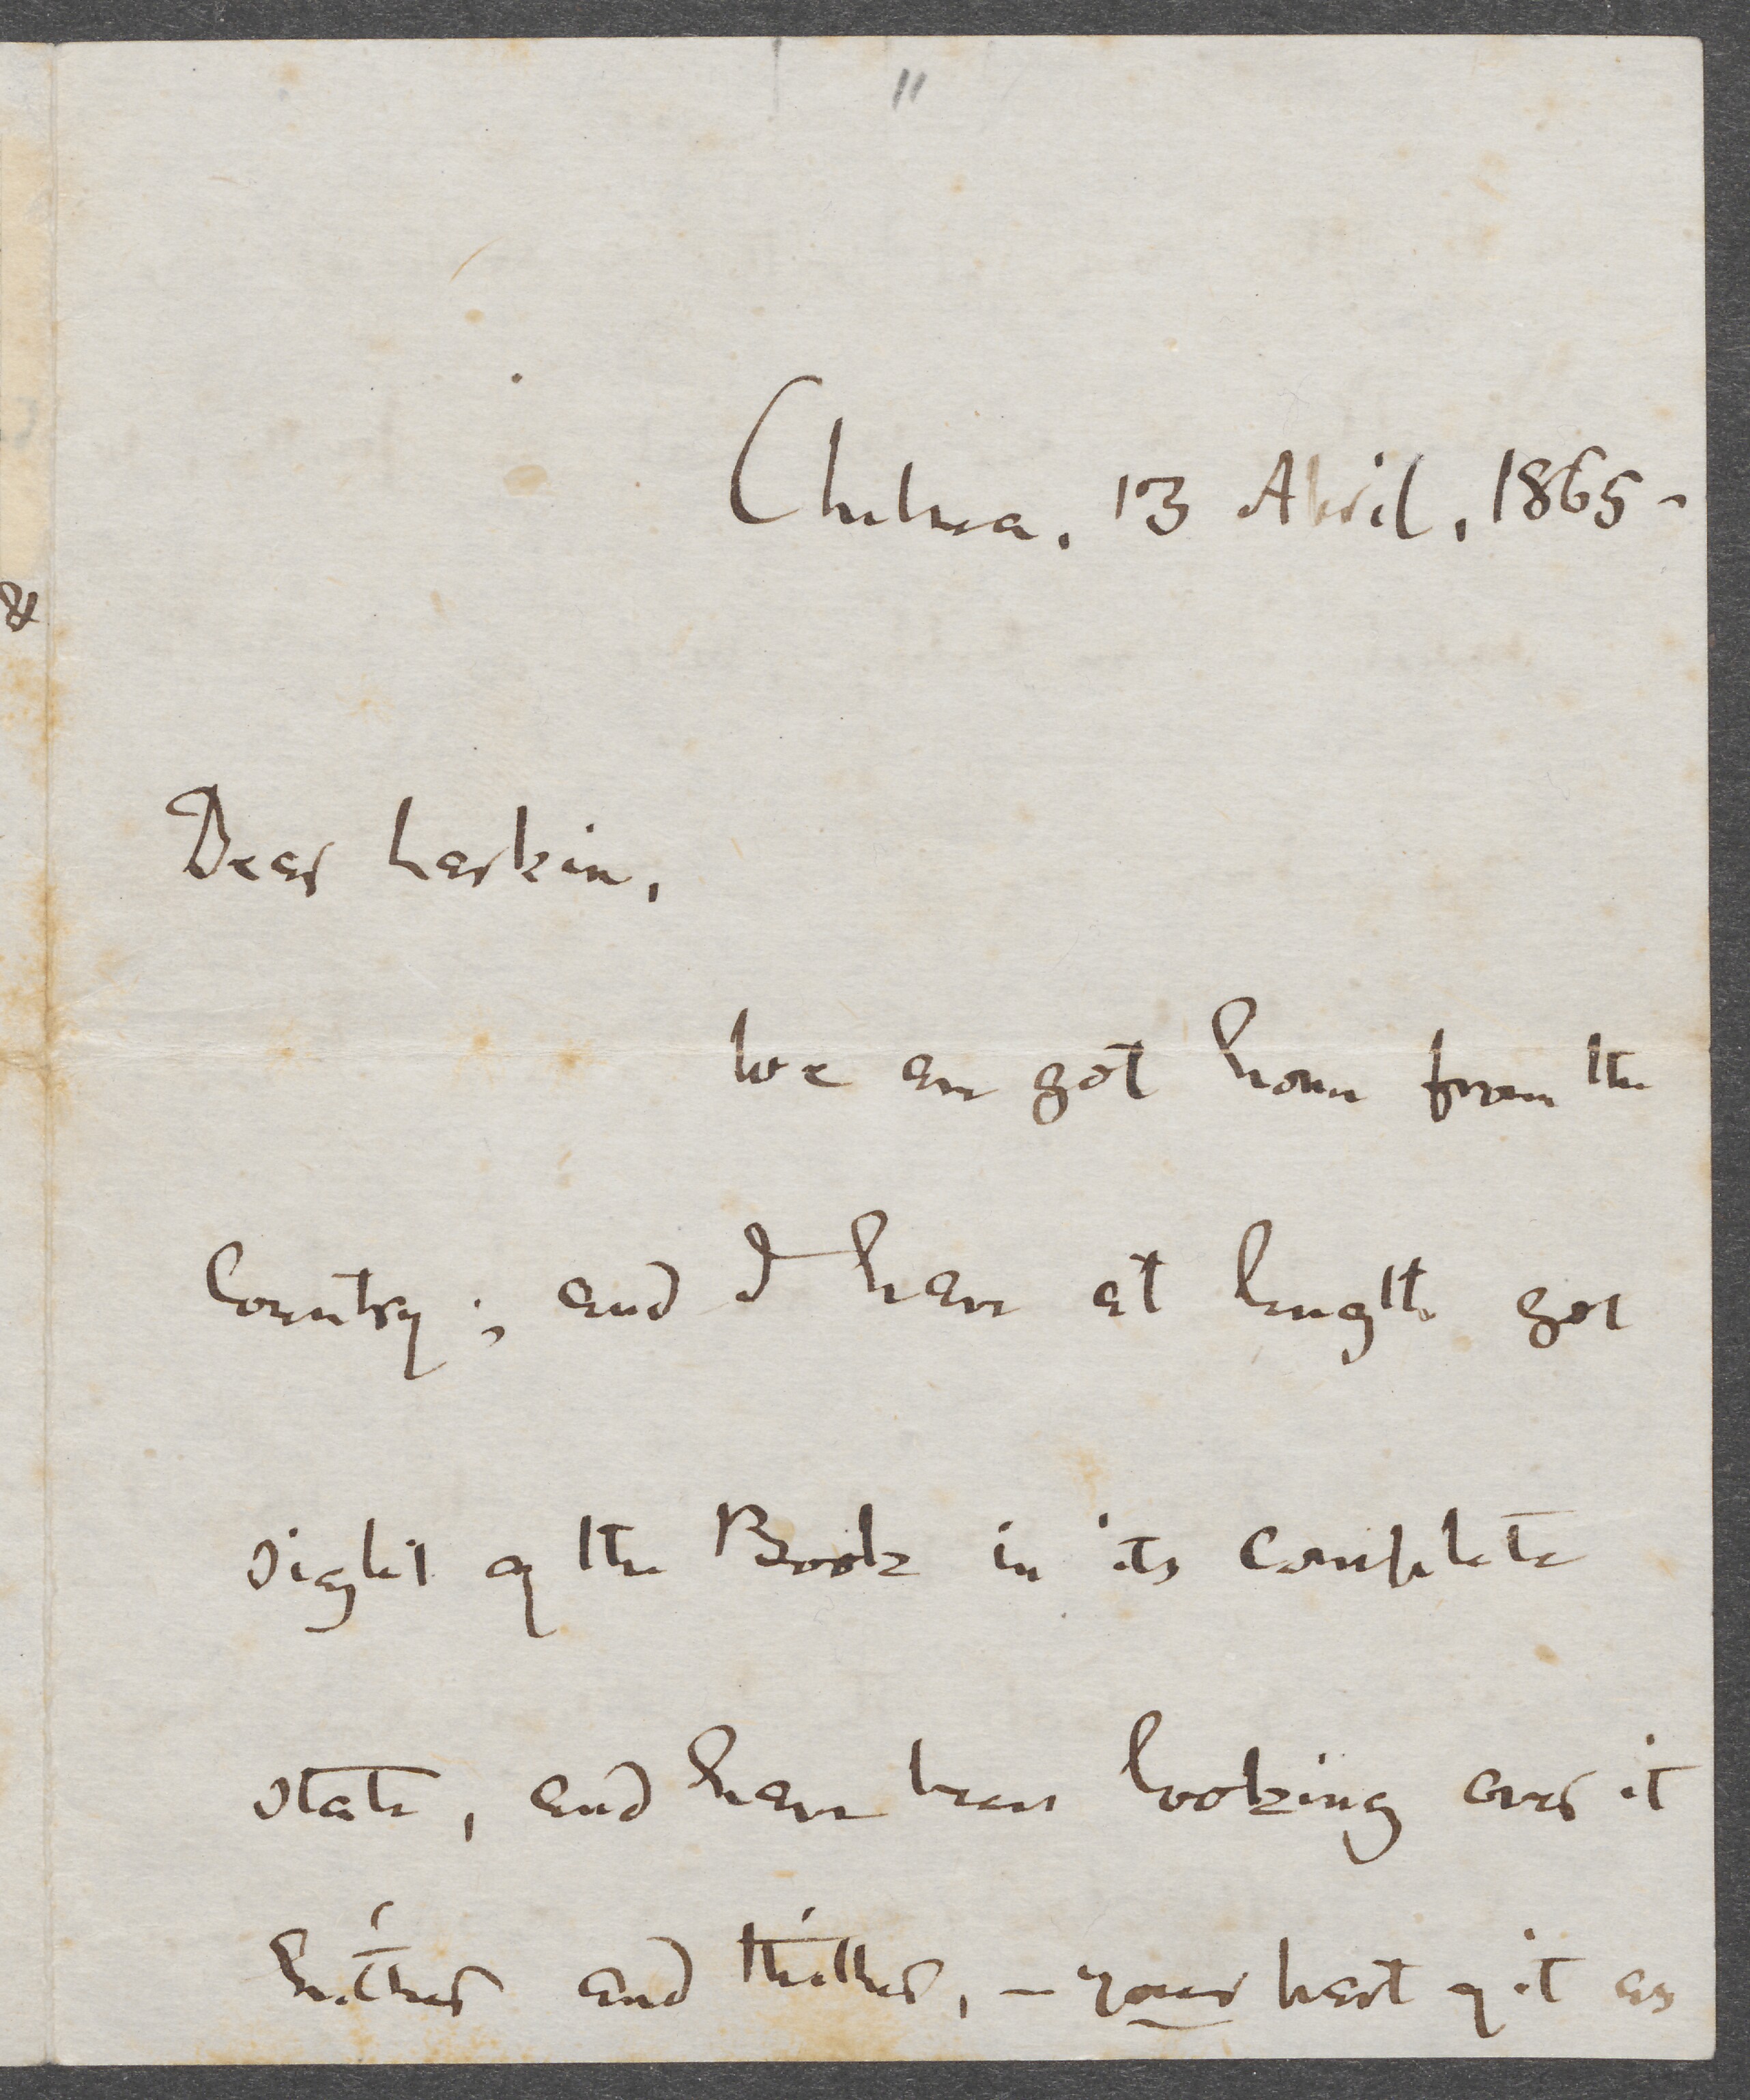 "
Chelsea, 13 April, 1865 -
&
Dear Larkin,
We are got home from the
Country; and I have at length got
sight of the Book in its complete
state, and have been looking over it
hither and thither, – your part of it as